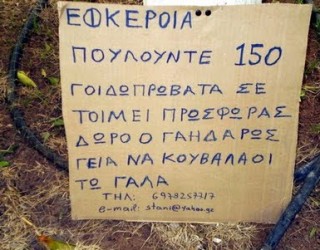 ΕΦΚΕΡΟΙΑ
ΠΟΥΛΟΥΝΤΕ 150
ΓΟΙΔΩΠΡΩΒΑΤΑ ΣΕ
ΤΟΙΜΕΙ ΠΡΩΣΦΩΡΑΣ
ΔΩΡΟ Ο ΓΑΗΔΑΡΟΣ
ΓΕΙΑ ΝΑ ΚΟΥΒΑΛΑΟΙ
ΤΩ ΓΑΛΑ
ΤΗΛ: 6978257717
e-mail: stani@yahoo.gr